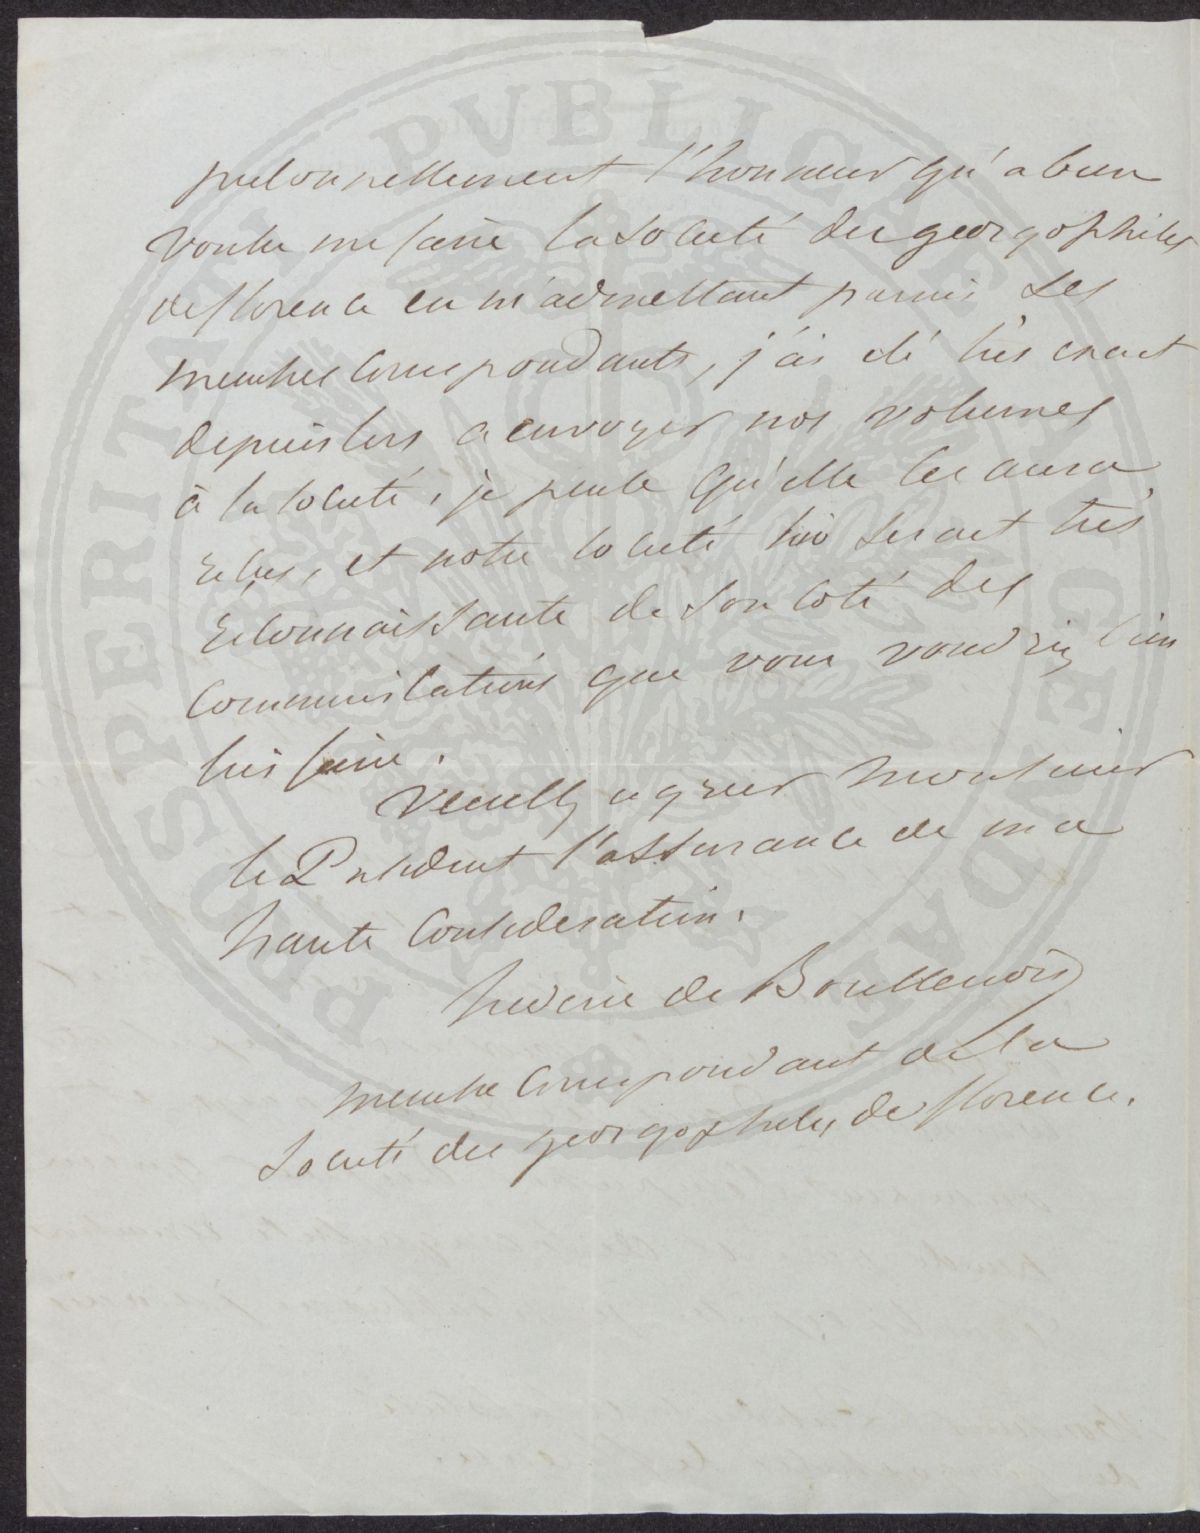 personnellement l'honneur qu'a bien
voulu me faire la société des georgophiles
de florence en m'admettant parmis ses
membres Correspondants, j'ai été très exact
depuis lors a envoyer nos volumes
à la société, je pense qu'elle les aura
reçus, et notre société lui serait très
reconnaissante de son coté des
Communications que vous voudriez bien
lui faire.
Veuillez agréer Monsieur
le Président l'assurance de ma
haute Considération.
frederic de Boullenois
membre Correspondant de la
Société des georgophiles de florence.
PROSPERITATI PVBLICAE AVGENDAE